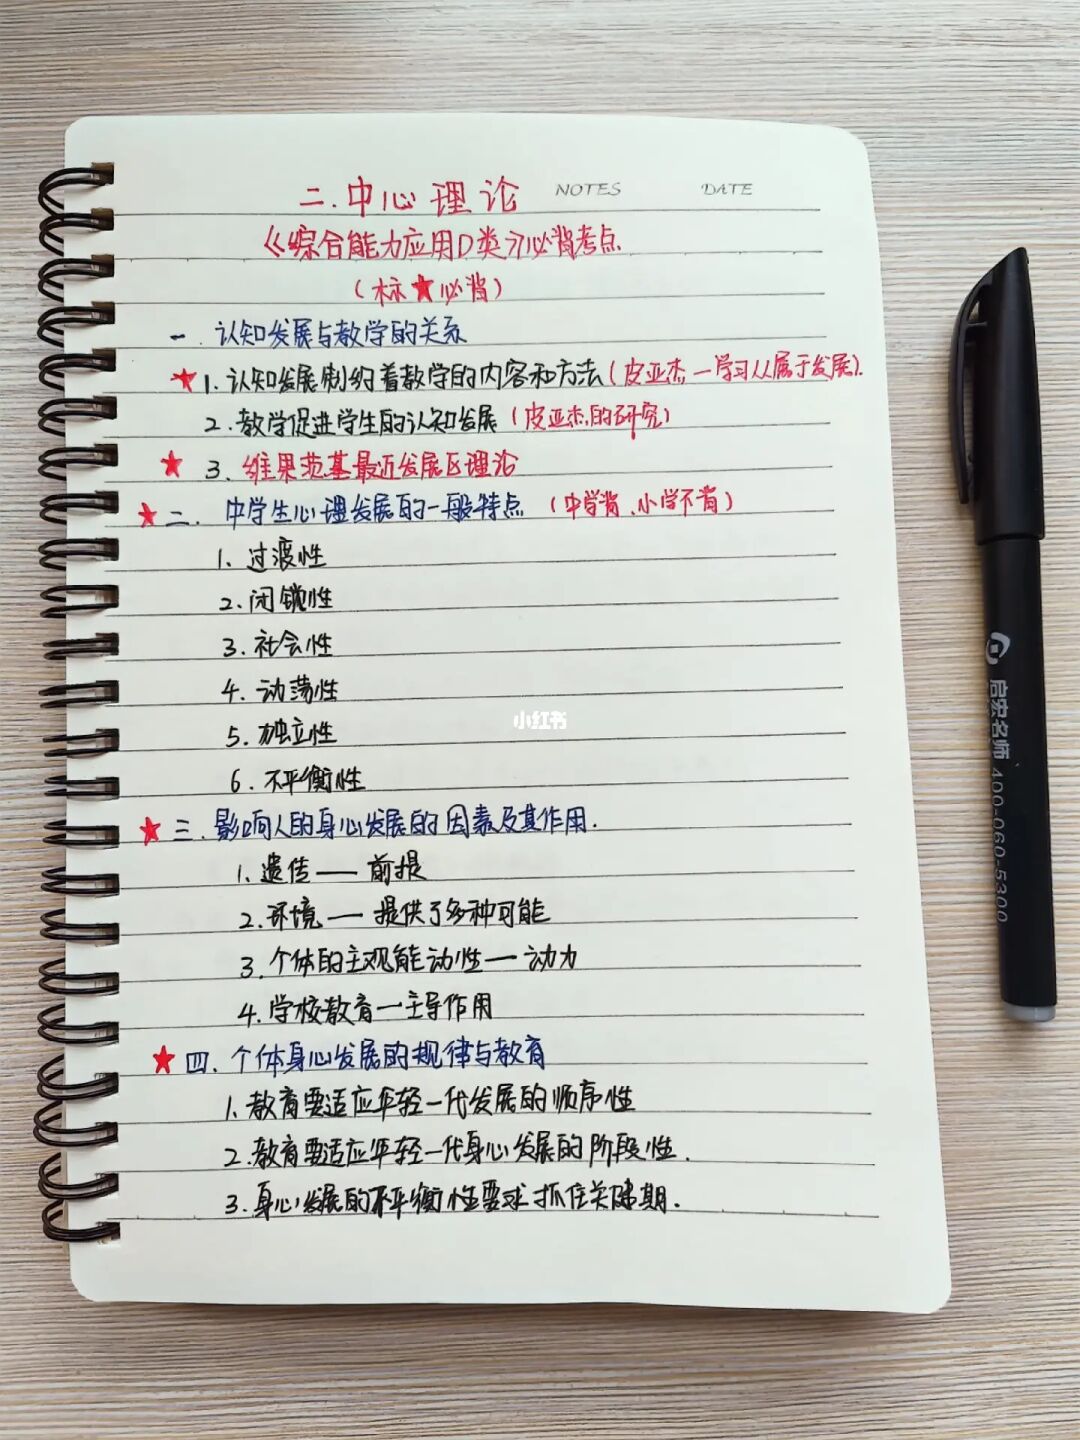 二.中心理论
NOTES
DATE
《综合能力应用D类》必背考点
(标★必背)
一.认知发展与教学的关系
★1.认知发展制约着教学的内容和方法(皮亚杰—学习从属于发展).
2.教学促进学生的认知发展(皮亚杰的研究)
★3.维果茨基最近发展区理论
★二.中学生心理发展的一般特点(中学背、小学不背)
1.过渡性
2.闭锁性
3.社会性
4.动荡性
5.独立性
6.不平衡性
★三.影响人的身心发展的因素及其作用.
1.遗传——前提
2.环境——提供了多种可能
3.个体的主观能动性—动力
4.学校教育—主导作用
★四.个体身心发展的规律与教育
1.教育要适应年轻一代发展的顺序性
2.教育要适应年轻一代身心发展的阶段性.
3.身心发展的不平衡性要求抓住关键期.
小红书
启宏名师 400-060-5300